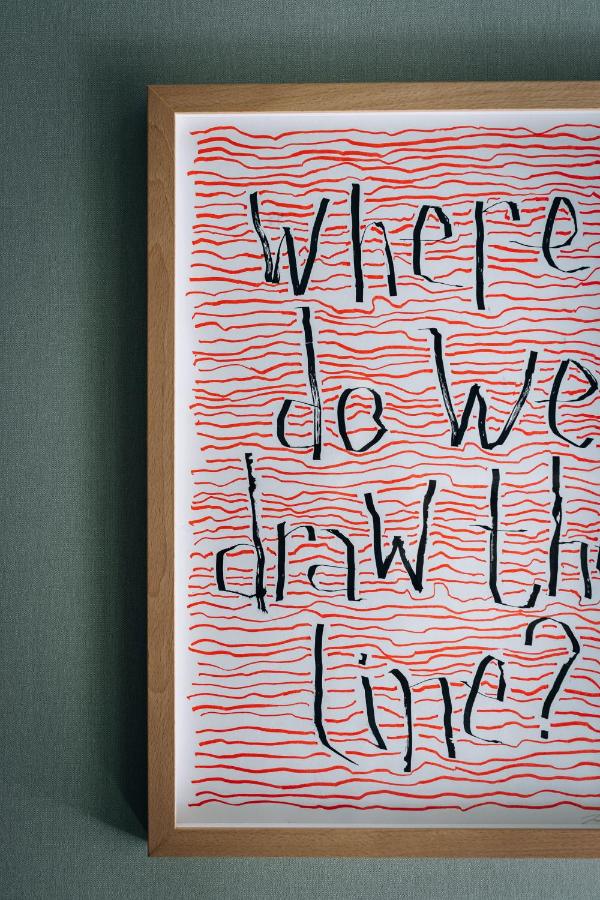 Where
do we
draw th
line?